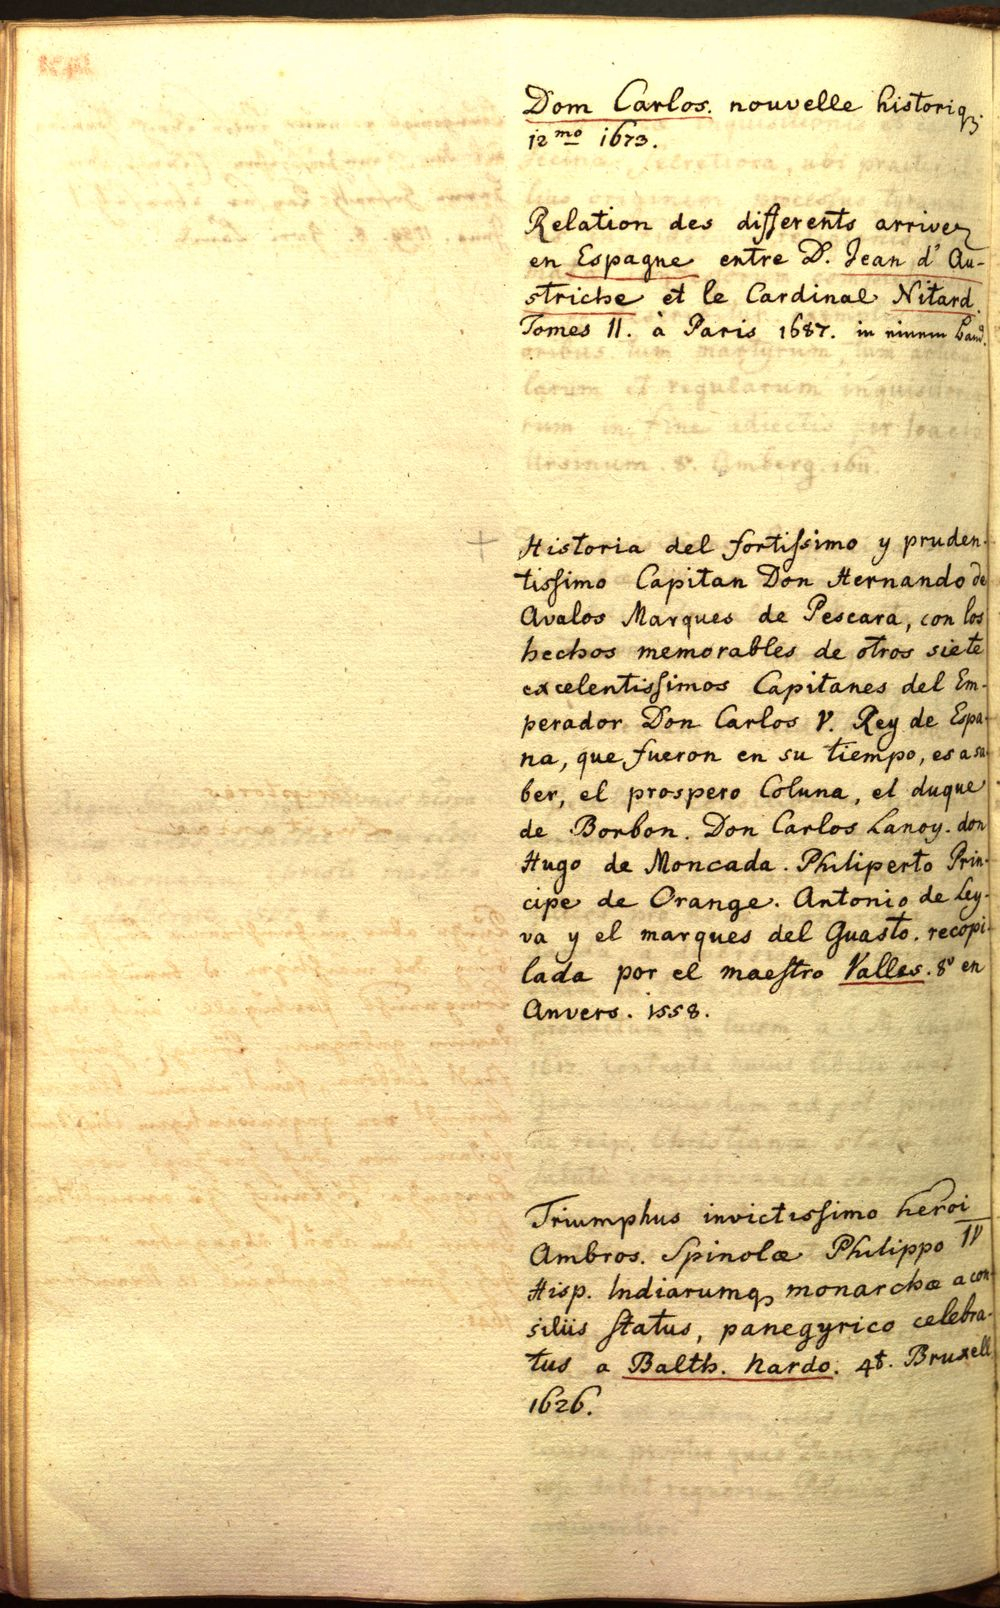 Dom Carlos. nouvelle historiq₃.
12mo 1673.
Relation des differents arrivez
en Espagne entre D. Jean d' Au-
striche et le Cardinal Nitard.
Tomes II. à Paris 1687. in einem Band.
Historia del fortissimo y pruden-
tissimo Capitan Don Hernando de
Avalos Marques de Pescara, con los
hechos memorables de otros siete
excelentissimos Capitanes del Em-
perador Don Carlos V. Rey de Espa-
na, que fueron en su tiempo, es a sa-
ber, el prospero Coluna, el duque
de Borbon. Don Carlos Lanoy. don
Hugo de Moncada. Philiperto Prin-
cipe de Orange. Antonio de Ley-
va y el marques del Guasto. recopi-
lada por el maestro Valles. 8º en
Anvers. 1558.
Triumphus invictissimo heroi
Ambros. Spinolæ Philippo IV
Hisp. Indiarumq₃ monarchæ a con-
siliis status, panegyrico celebra-
tus a Balth. Nardo. 4t. Bruxell
1626.